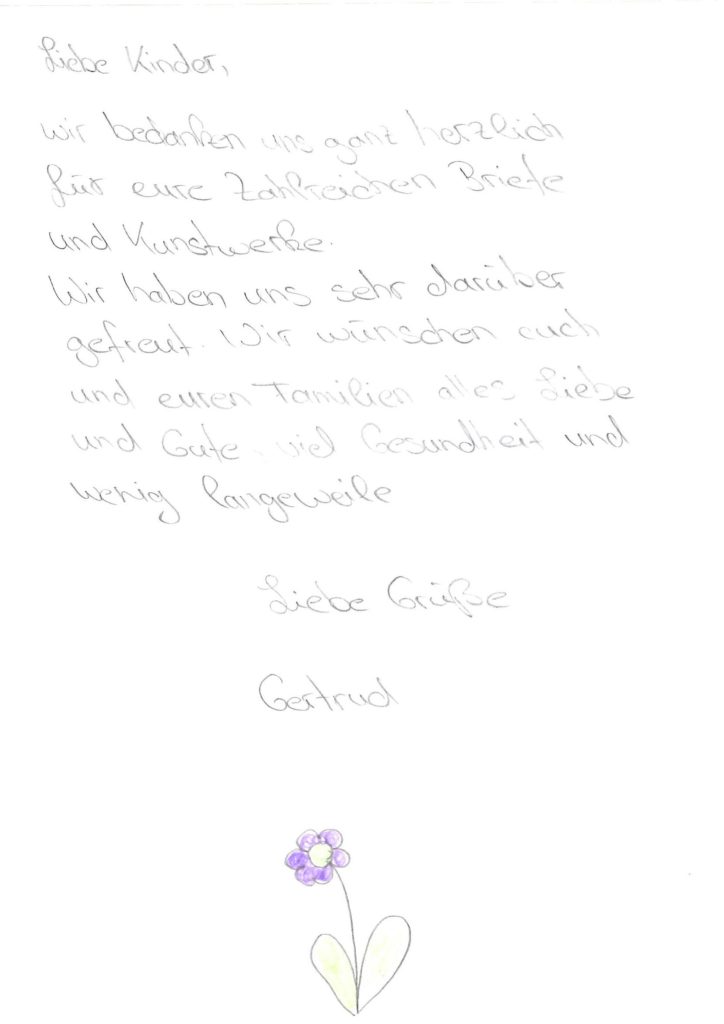 Liebe Kinder,
wir bedanken uns ganz herzlich
für eure Zahlreichen Briefe
und Kunstwerke.
Wir haben uns sehr darüber
gefreut. Wir wünschen euch
und euren Familien alles Liebe
und Gute, viel Gesundheit und
wenig langeweile
Liebe Grüße
Gertrud